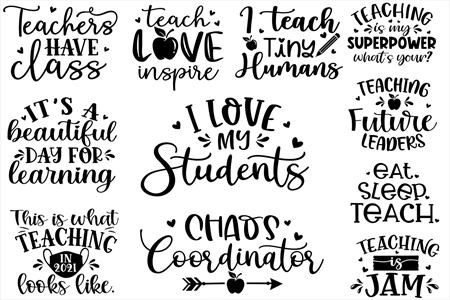 Teachers
HAVE
class
teach
LOVE
inspire
I teach
Tiny
Humans
TEACHING
is my
SUPERPOWER
what's your?
IT'S A
beautiful
DAY FOR
learning
I LOVE
MY
Students
TEACHING
Future
LEADERS
This is what
TEACHING
IN
2021
looks like.
CHAOS
Coordinator
EAT.
SLEEP.
TEACH.
TEACHING
is
JAM